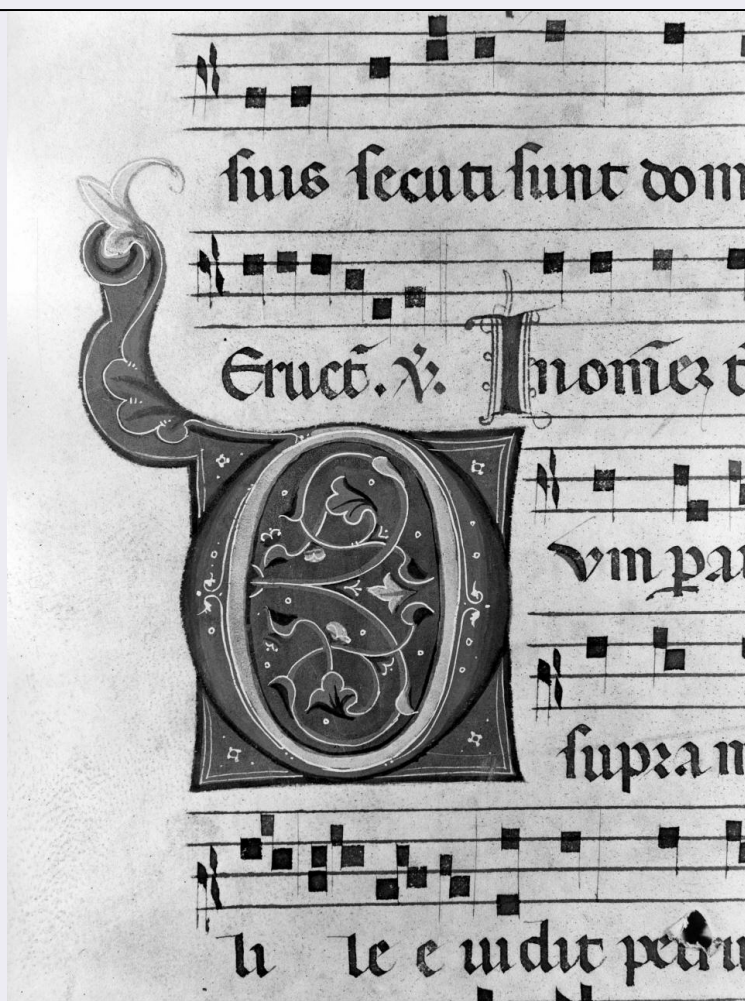 suis secuti sunt dom
Eruct̄. ℣. In om̄eꝫ t
Dum pau
supra m
li le e uidit petru